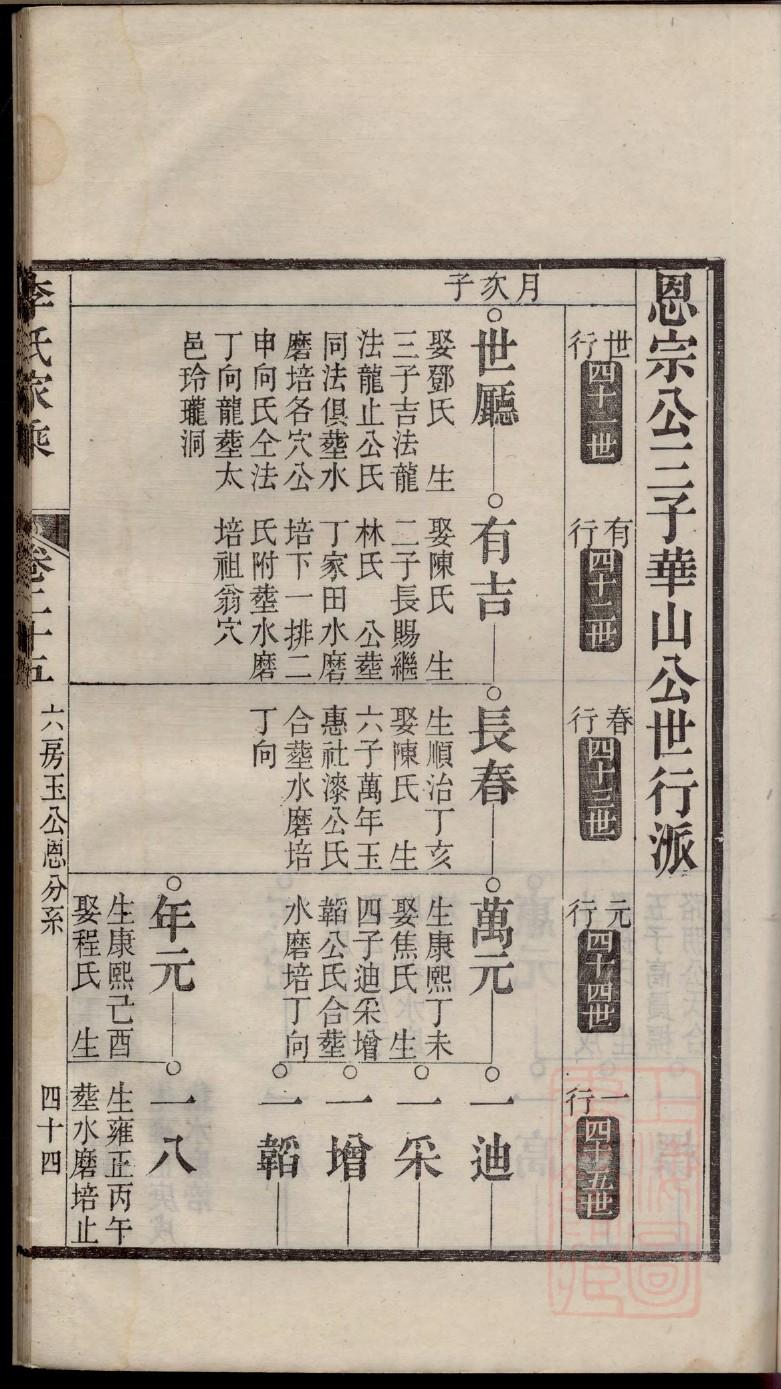 恩宗公三子華山公世行派
世行
四十一世
有行
四十二世
春行
四十三世
元行
四十四世
一行
四十五世
月次子
世廳
娶鄧氏　生
三子吉法龍
法龍止公氏
同法俱塟水
磨培各穴公
申向氏仝法
丁向龍塟太
邑玲瓏洞
有吉
娶陳氏　生
二子長賜繼
林氏　公塟
丁家田水磨
培下一排二
氏附塟水磨
培祖翁穴
長春
生順治丁亥
娶陳氏　生
六子萬年玉
惠社漆公氏
合塟水磨培
丁向
萬元
生康熙丁未
娶焦氏　生
四子迪采增
韜公氏合塟
水磨培丁向
一迪
一采
一增
一韜
年元
生康熙己酉
娶程氏　生
一八
生雍正丙午
塟水磨培止
李氏家乘
卷二十五
六房玉公恩分系
四十四